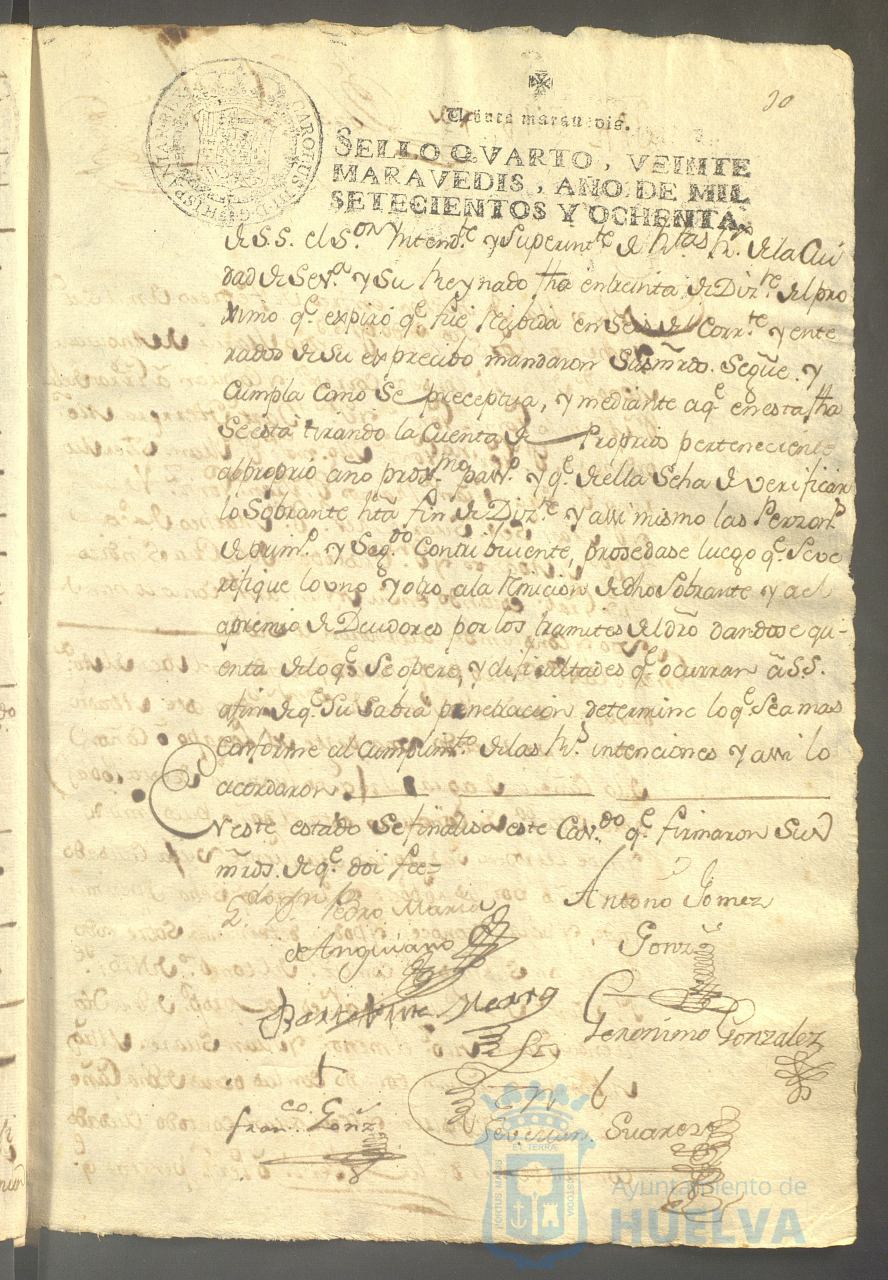 10
CAROLUS III D G HISPANIAR REX
Treinta maravedis.
SELLO QVARTO, VEINTE
MARAVEDIS, AÑO DE MIL
SETECIENTOS Y OCHENTA.
de S.S. el S.ºʳ Yntend.ᵗᵉ y Superint.ᵗᵉ de Rentas R.ˢ de la Ciu
dad de Sev.ª y Su Reynado fha en treinta de Diz.ʳᵉ del pro
ximo q.ᵉ expiró q.ᵉ fue recibida en Seis del Corr.ᵗᵉ y ente
rados de Su expresibo mandaron Susm̃rds. Se gũe. y
Cumpla Como Se preceptua, y mediante aq.ᵉ en esta fha
Se está tirando la Cuenta de Proprios perteneciente
al proprio año prox.ᵐᵒ pas.ᵒ y q.ᵉ de ella Se ha de verificar
lo Sobrante hta fin de Diz.ʳᵉ y assi mismo las Perzon.ˢ
de prim.ᵒ y Seg.ᵈᵒ Contribuiente, prosedase luego q.ᵉ Seve
rifique lo uno y otro a la Remicion de dho Sobrante y a el
apremio de Deudores por los tramites del dro dandose qu-
enta de lo q.ᵉ Se opere, y dificultades q.ᵉ ocurran á S.S.
afin de q.ᵉ Su Sabia penetracion determine lo q.ᵉ Sea mas
Conforme al Cumplim.ᵗᵒ de las R.ˢ intenciones y assi lo
acordaron
En este estado Se finalisó este Cav.ᵈᵒ q.ᵉ firmaron Sus
m̃rds. de q.ᵉ doi fee=
D. Pedro Maria
de Anguiano
Antonio Gomez
Gonz.
Geronimo Gonzalez
Fran.ᶜᵒ Gonz.
Severian. Suarez
EL TERRA
PORTUS MARIS
CUSTODIA
Ayuntamiento de
HUELVA